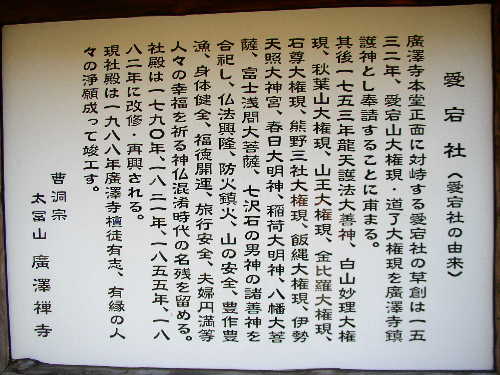 愛宕社（愛宕社の由来）
廣澤寺本堂正面に対峙する愛宕社の草創は一五
三二年、愛宕山大権現・道了大権現を廣澤寺鎮
護神とし奉請することに甫まる。
其後一七五三年龍天護法大善神、白山妙理大権
現、秋葉山大権現、山王大権現、金比羅大権現、
石尊大権現、熊野三社大権現、飯縄大権現、伊勢
天照大神宮、春日大明神、稲荷大明神、八幡大菩
薩、富士浅間大菩薩、七沢石の男神の諸善神を
合祀し、仏法興隆、防火鎮火、山の安全、豊作豊
漁、身体健全、福徳開運、旅行安全、夫婦円満等
人々の幸福を祈る神仏混淆時代の名残を留める。
社殿は一七九〇年、一八二一年、一八五五年、一八
八二年に改修・再興される。
現社殿は一九八八年廣澤寺檀徒有志、有縁の人
々の浄願成って竣工す。
曹洞宗
太冨山 廣澤禅寺